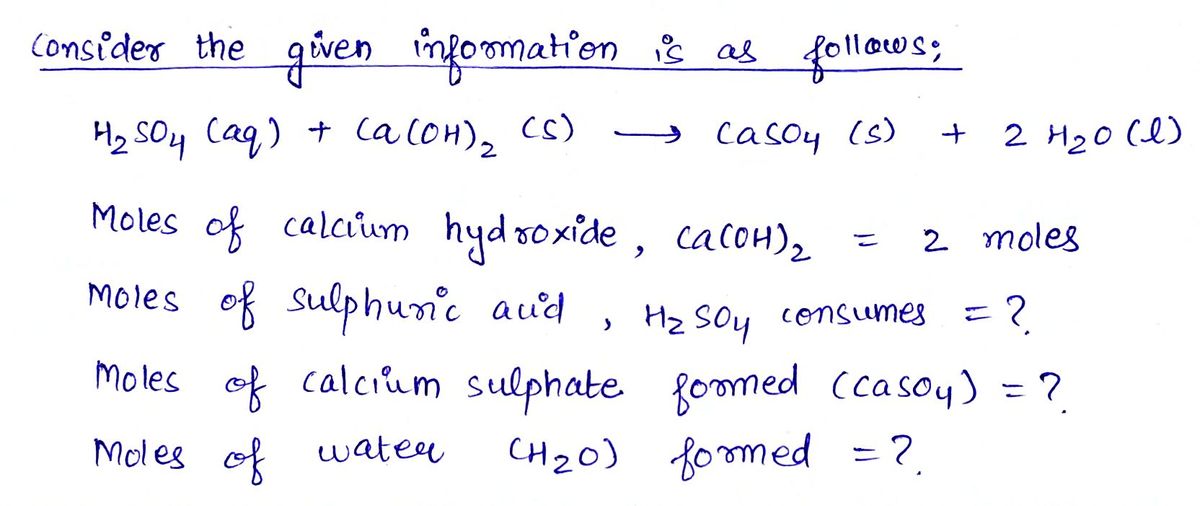 Consider the given information is as follows;
H₂SO₄ (aq) + Ca(OH)₂ (s) → CaSO₄ (s) + 2 H₂O (l)
Moles of calcium hydroxide, Ca(OH)₂ = 2 moles
Moles of sulphuric acid, H₂SO₄ consumes = ?
Moles of calcium sulphate formed (CaSO₄) = ?
Moles of water (H₂O) formed = ?